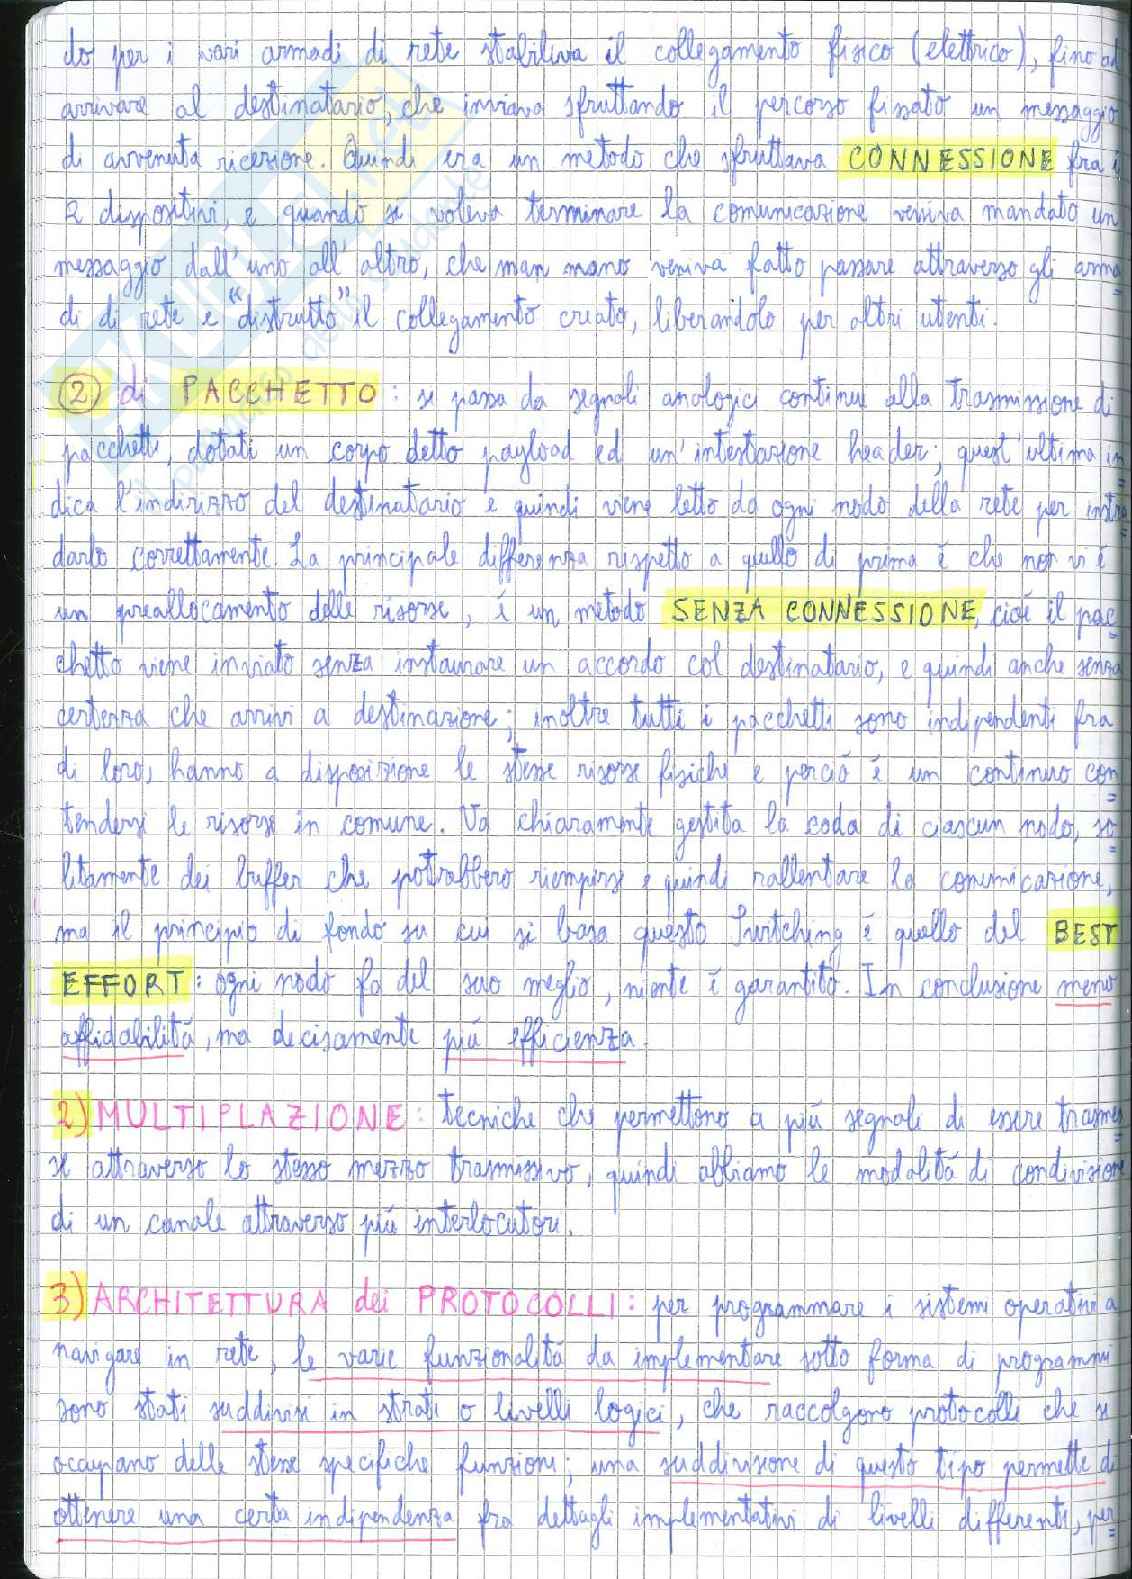 do per i vari armadi di rete stabiliva il collegamento fisico (elettrico), fino ad
arrivare al destinatario, che inviava sfruttando il percorso fissato un messaggio
di avvenuta ricezione. Quindi era un metodo che sfruttava CONNESSIONE fra i
2 dispositivi, e quando si voleva terminare la comunicazione veniva mandato un
messaggio dall'uno all'altro, che man mano veniva fatto passare attraverso gli arma
di di rete e "distrutto" il collegamento creato, liberandolo per altri utenti.
② di PACCHETTO: si passa da segnali analogici continui alla trasmissione di
pacchetti, dotati un corpo detto payload ed un'intestazione header; quest'ultima in
dica l'indirizzo del destinatario e quindi viene letto da ogni nodo della rete per instra
darlo correttamente. La principale differenza rispetto a quello di prima é che non vi é
un preallocamento delle risorse, é un metodo SENZA CONNESSIONE, cioé il pac
chetto viene inviato senza instaurare un accordo col destinatario, e quindi anche senza
certezza che arrivi a destinazione; inoltre tutti i pacchetti sono indipendenti fra
di loro, hanno a disposizione le stesse risorse fisiche e perció é un continuo con
tendersi le risorse in comune. Va chiaramente gestita la coda di ciascun nodo, so
litamente dei buffer che potrebbero riempirsi e quindi rallentare la comunicazione,
ma il principio di fondo su cui si basa questo Switching é quello del BEST
EFFORT: ogni nodo fa del suo meglio, niente é garantito. In conclusione meno
affidabilitá, ma decisamente piú efficienza.
2) MULTIPLAZIONE: tecniche che permettono a piú segnali di essere trasmes
si attraverso lo stesso mezzo trasmissivo, quindi abbiamo le modalitá di condivisione
di un canale attraverso piú interlocutori.
3) ARCHITETTURA dei PROTOCOLLI: per programmare i sistemi operativi a
navigare in rete, le varie funzionalitá da implementare sotto forma di programmi
sono stati suddivisi in strati o livelli logici, che raccolgono protocolli che si
occupano delle stesse specifiche funzioni; una suddivisione di questo tipo permette di
ottenere una certa indipendenza fra dettagli implementativi di livelli differenti, per